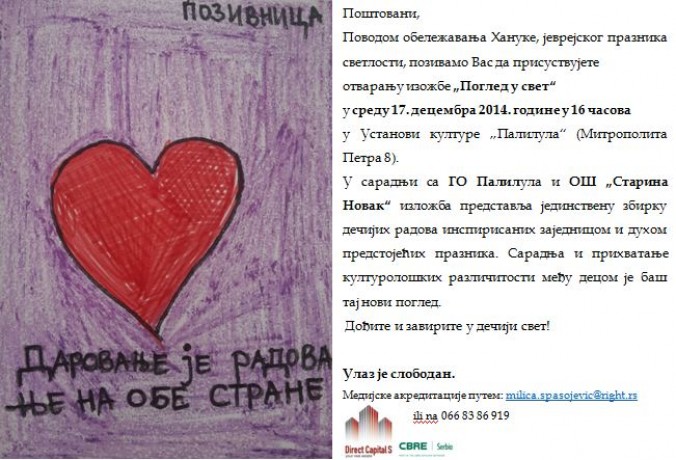 ПОЗИВНИЦА
ДАРОВАЊЕ ЈЕ РАДОВА
-ЊЕ НА ОБЕ СТРАНЕ
Поштовани,
Поводом обележавања Хануке, јеврејског празника
светлости, позивамо Вас да присуствујете
отварању изожбе „Поглед у свет“
у среду 17. децембра 2014. године у 16 часова
у Установи културе „Палилула“ (Митрополита
Петра 8).
У сарадњи са ГО Палилула и ОШ „Старина
Новак“ изложба представља јединствену збирку
дечијих радова инспирисаних заједницом и духом
предстојећих празника. Сарадња и прихватање
културолошких различитости међу децом је баш
тај нови поглед.
Дођите и завирите у дечији свет!
Улаз је слободан.
Медијске акредитације путем: milica.spasojevic@right.rs
ili na 066 83 86 919
Direct Capital S
CBRE | Serbia